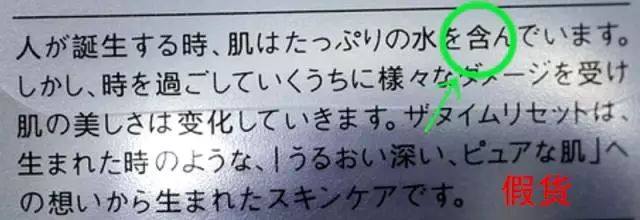 人が誕生する時、肌はたっぷりの水を含んでいます。
しかし、時を過ごしていくうちに様々なダメージを受け
肌の美しさは变化していきます。ザタイムリセットは、
生まれた時のような、「うるおい深い、ピュアな肌」へ
の想いから生まれたスキンケアです。
假货